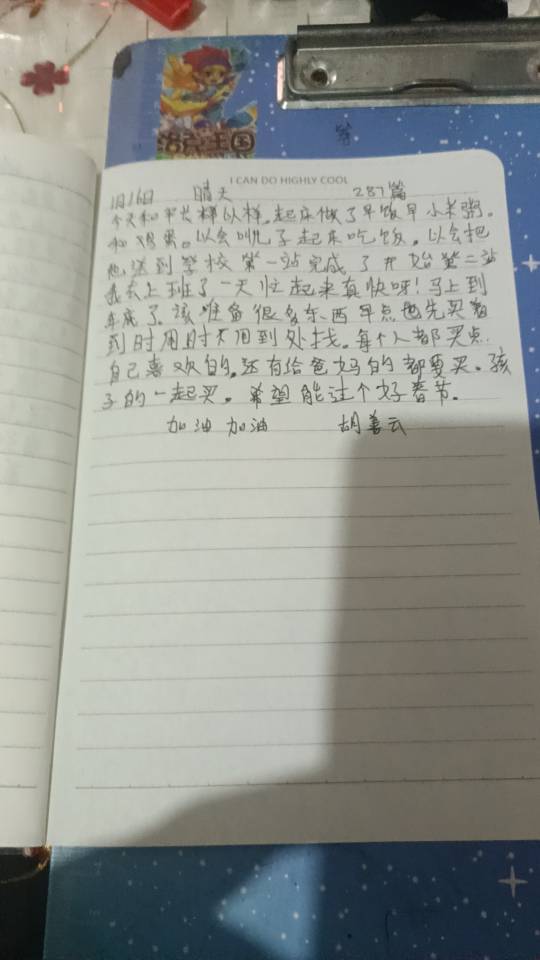 洛克王国
I CAN DO HIGHLY COOL
1月16日 晴天 287篇
今天和平长样以样。起床做了早饭早小米粥。
和鸡蛋。以会叫儿子起床吃饭。以会把
他送到学校第一站完成了开始第二站
我去上班了一天忙起来真快呀!马上到
年底了。该准备很多东西早点也先买着
到时用时不用到处找。每个人都买点
自己喜欢的。还有给爸妈的都要买。孩
子的一起买。希望能过个好春节。
加油加油 胡善云